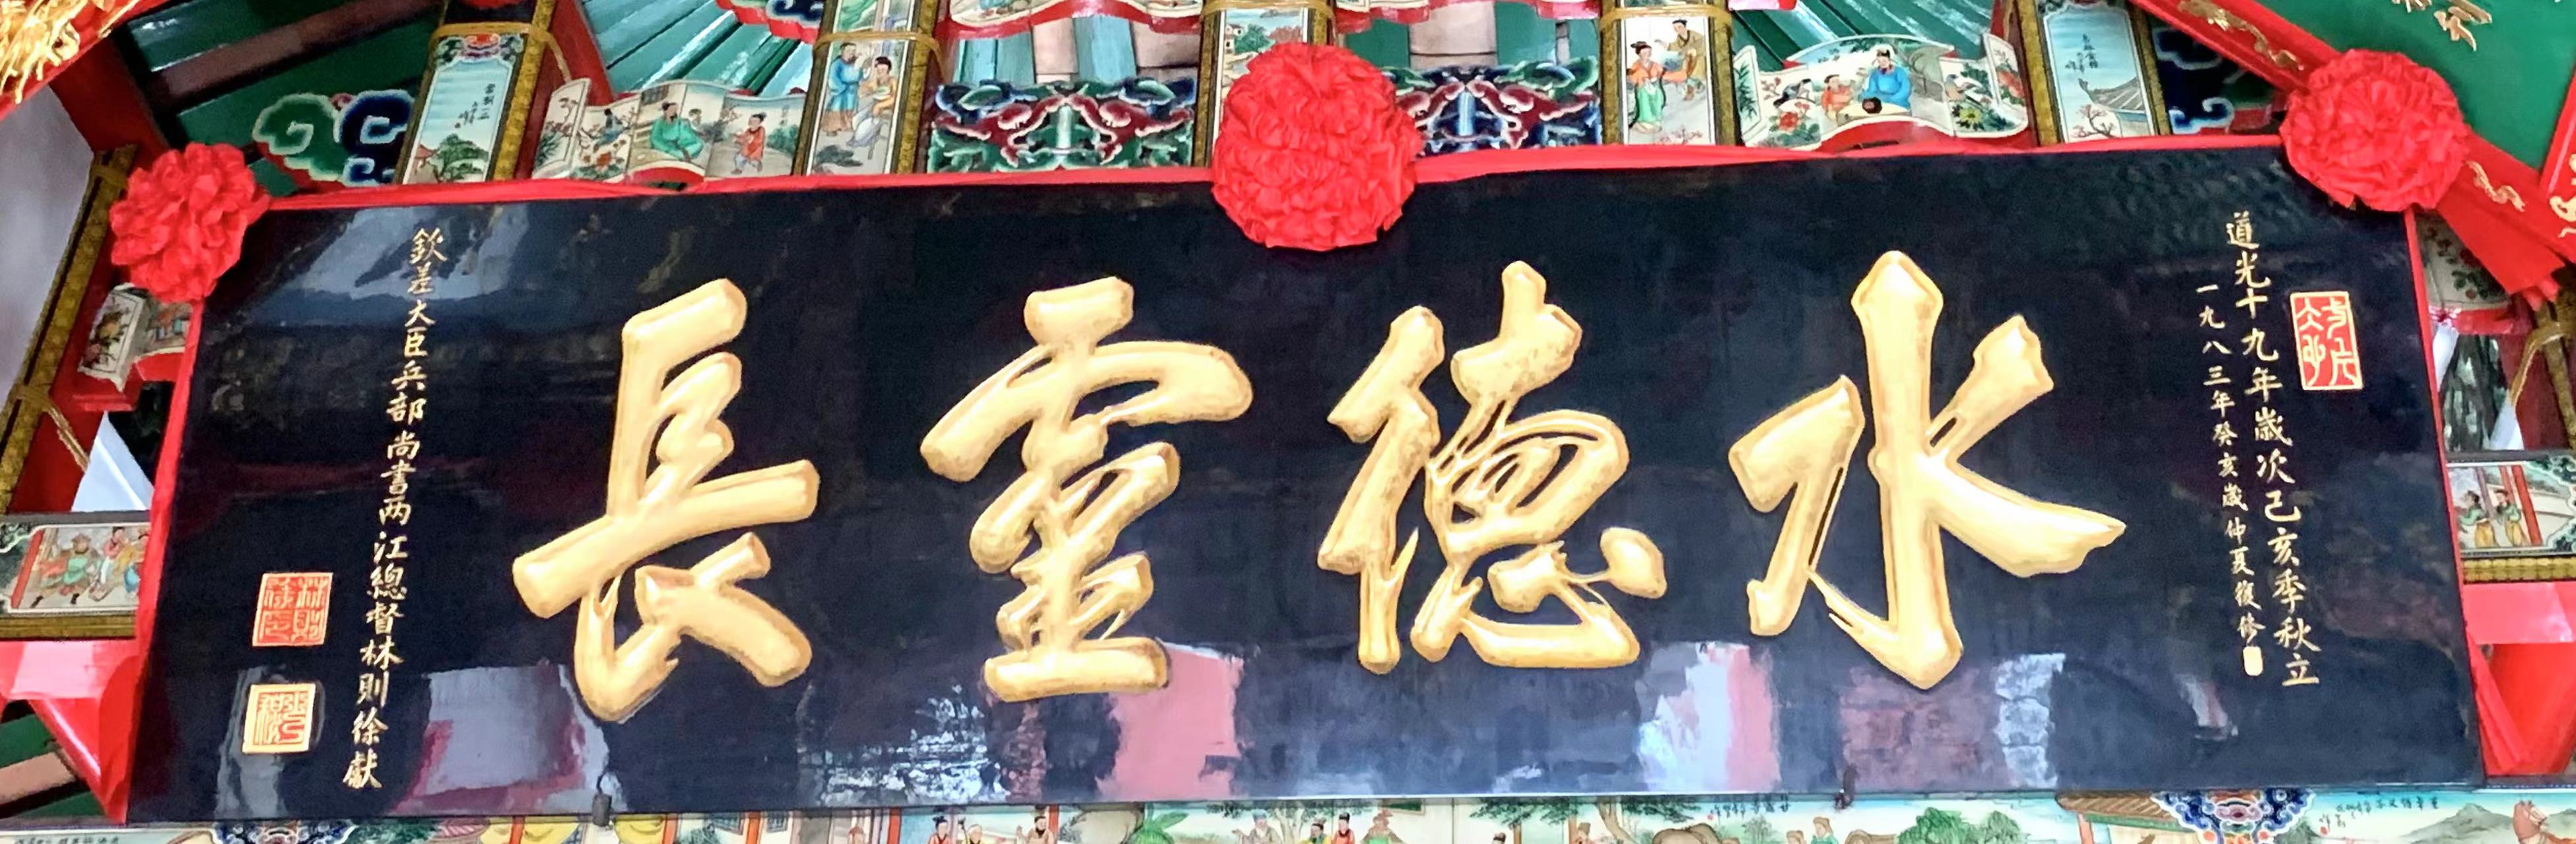 道光十九年歲次己亥季秋立
一九八三年癸亥歲仲夏復修
水德靈長
欽差大臣兵部尚書两江總督林則徐獻
林則徐印